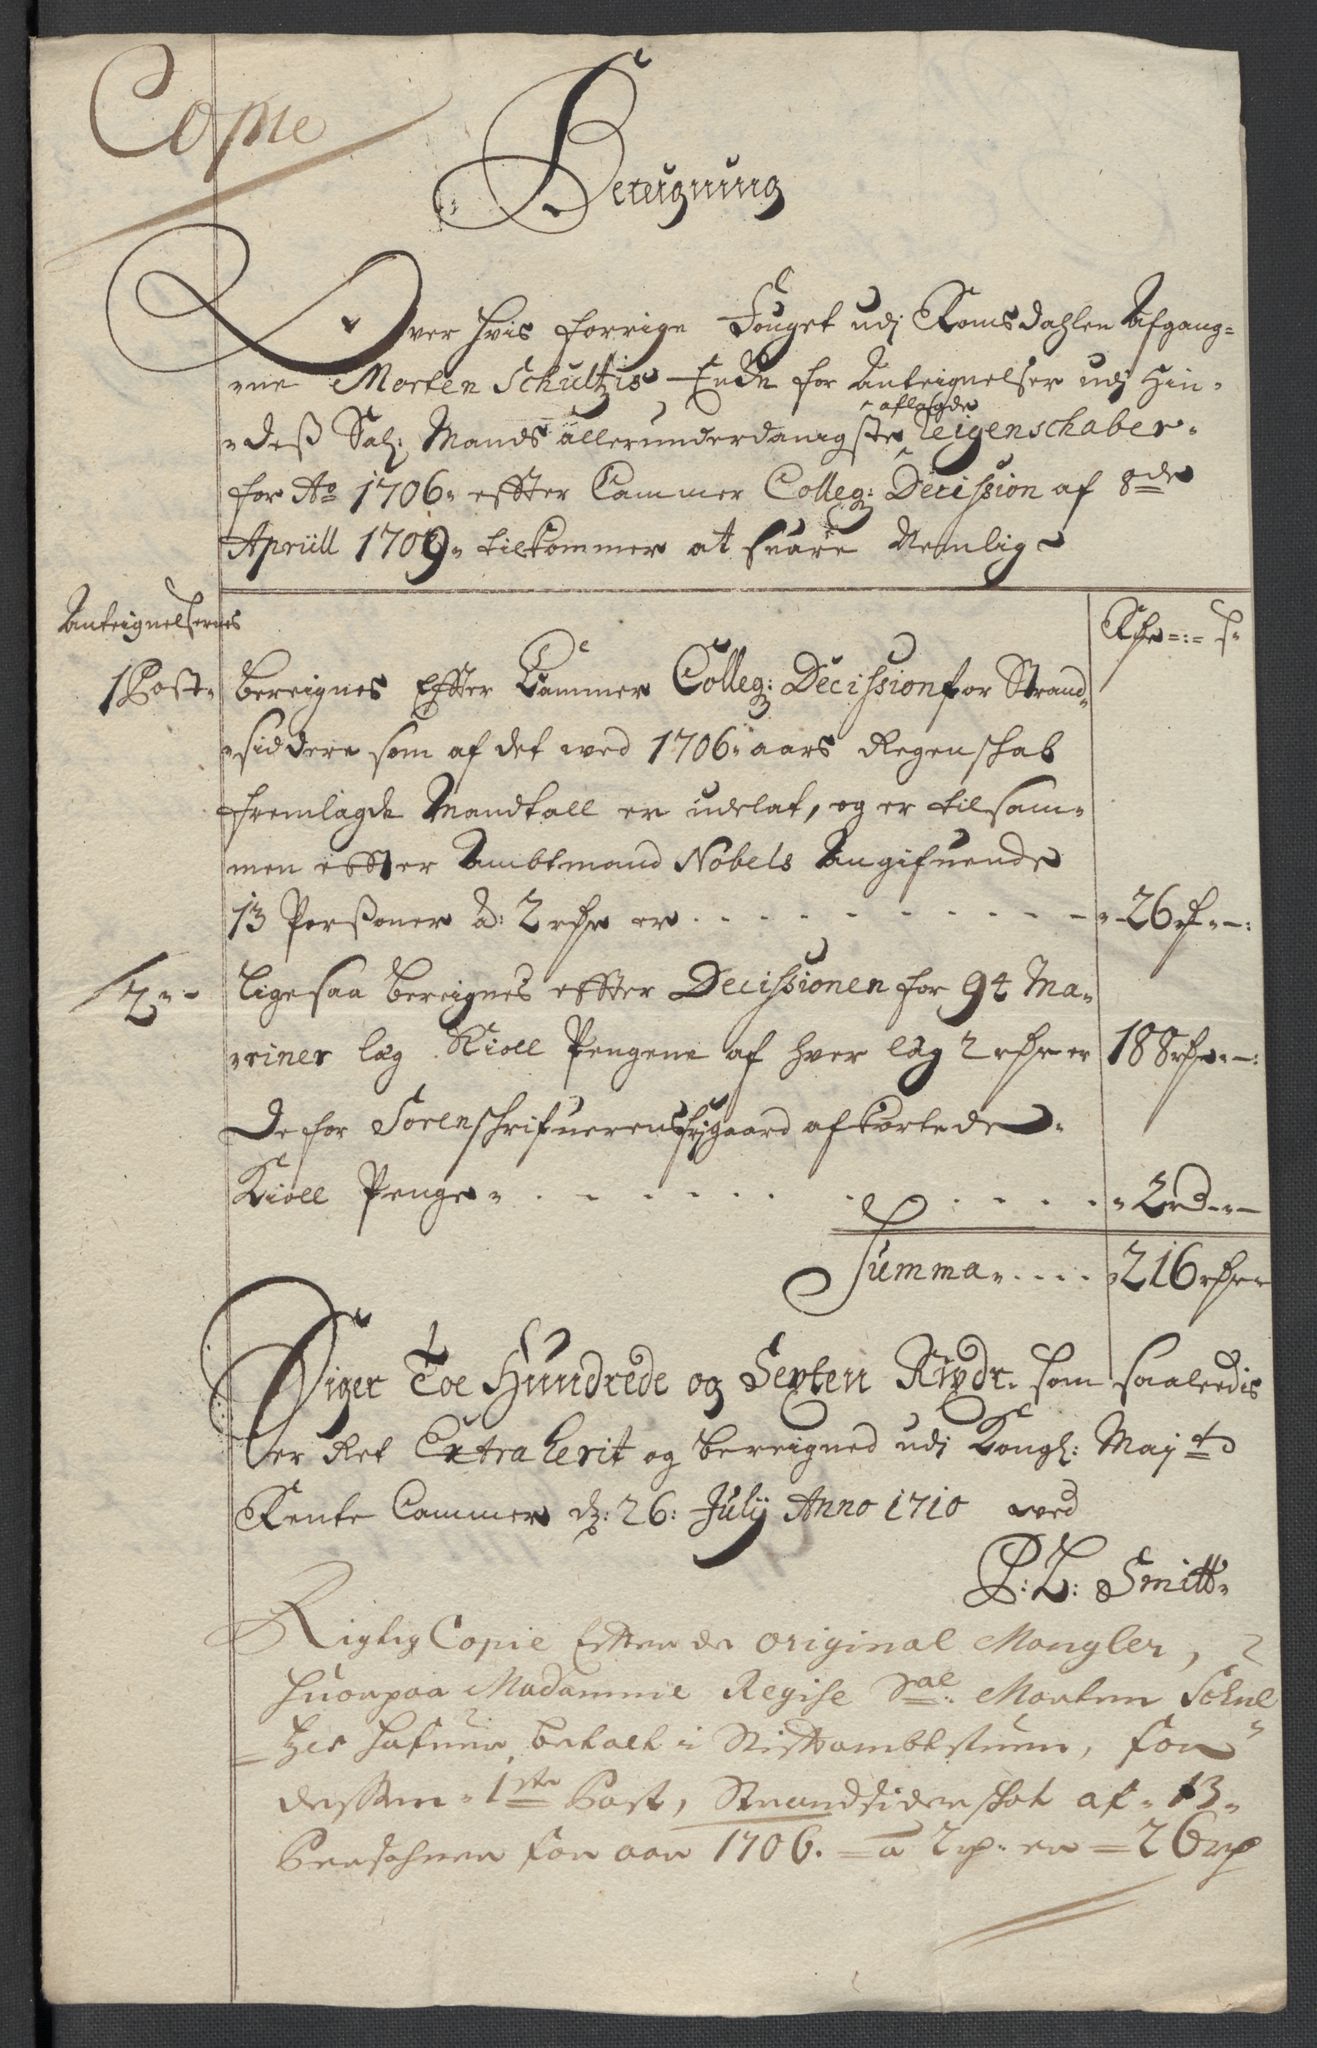 Copie
Bereigning
Over hvis forrige Fouget udj Romsdahlen Afgang-
ene Morten Schultzis Encke for Anteignelser udj hin-
des Sal: Mands allerunderdanigste aflagde Reigenschaber
for Ao 1706 effter Cammer Colleg: Decission af 8de
Aprill 1709 tilkommer at svare Nemlig
Anteignelsernes
Rdr s
1 Post
Bereignes Effter Cammer Colleg: Decission for Strand-
siddere som af det ved 1706 aars Regenschab
fremlagde Mandtall er udelat, og er tilsam-
men effter Ambtmand Nobels Angifvende
13 Persöner á: 2 rdr er - - - 26 r -:
2
Ligesaa bereignes effter Decissionen for 94 Ma-
riner læg Kioll Pengene af hver læg 2 rdr er 188 rdr -:
De for Sorenschrifverens frigaard afkortede
Kioll Penge - - - 2 rd - -
Summa - - - 216 rdr
Siger Toe Hundrede og Sexten Rixdr. som saaledis
er Ret Extraherit og bereigned udj Kongl: Majts
Rente Cammer d: 26: Julij Anno 1710 ved
P: L: Smitt
Rigtig Copie Efter de original Mangler,
hvorpaa Madamme Regise Sal: Morten Schul
tzes hafuer betalt i Stiftambtstuen, for
dessen 1ste Post, Strandsiderskat af 13
Persohner for aar 1706. á 2 rp. er = 26 rp